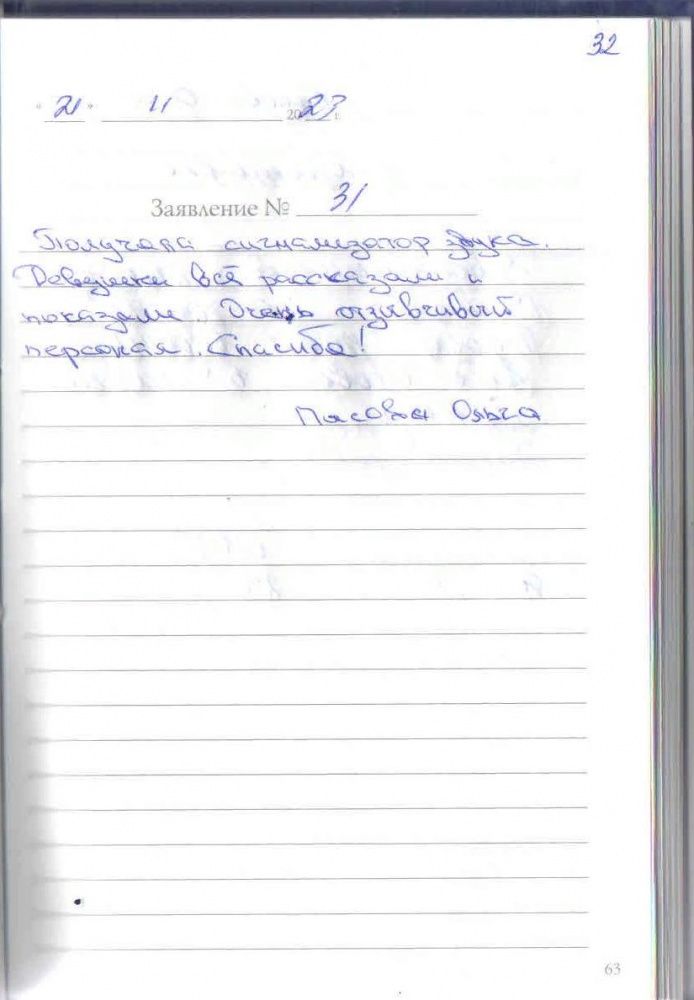 32
"21" 11 2023 г.
Заявление № 31
Получала сигнализатор звука.
Девушки всё рассказали и
показали. Очень отзывчивый
персонал. Спасибо!
Ольга
63